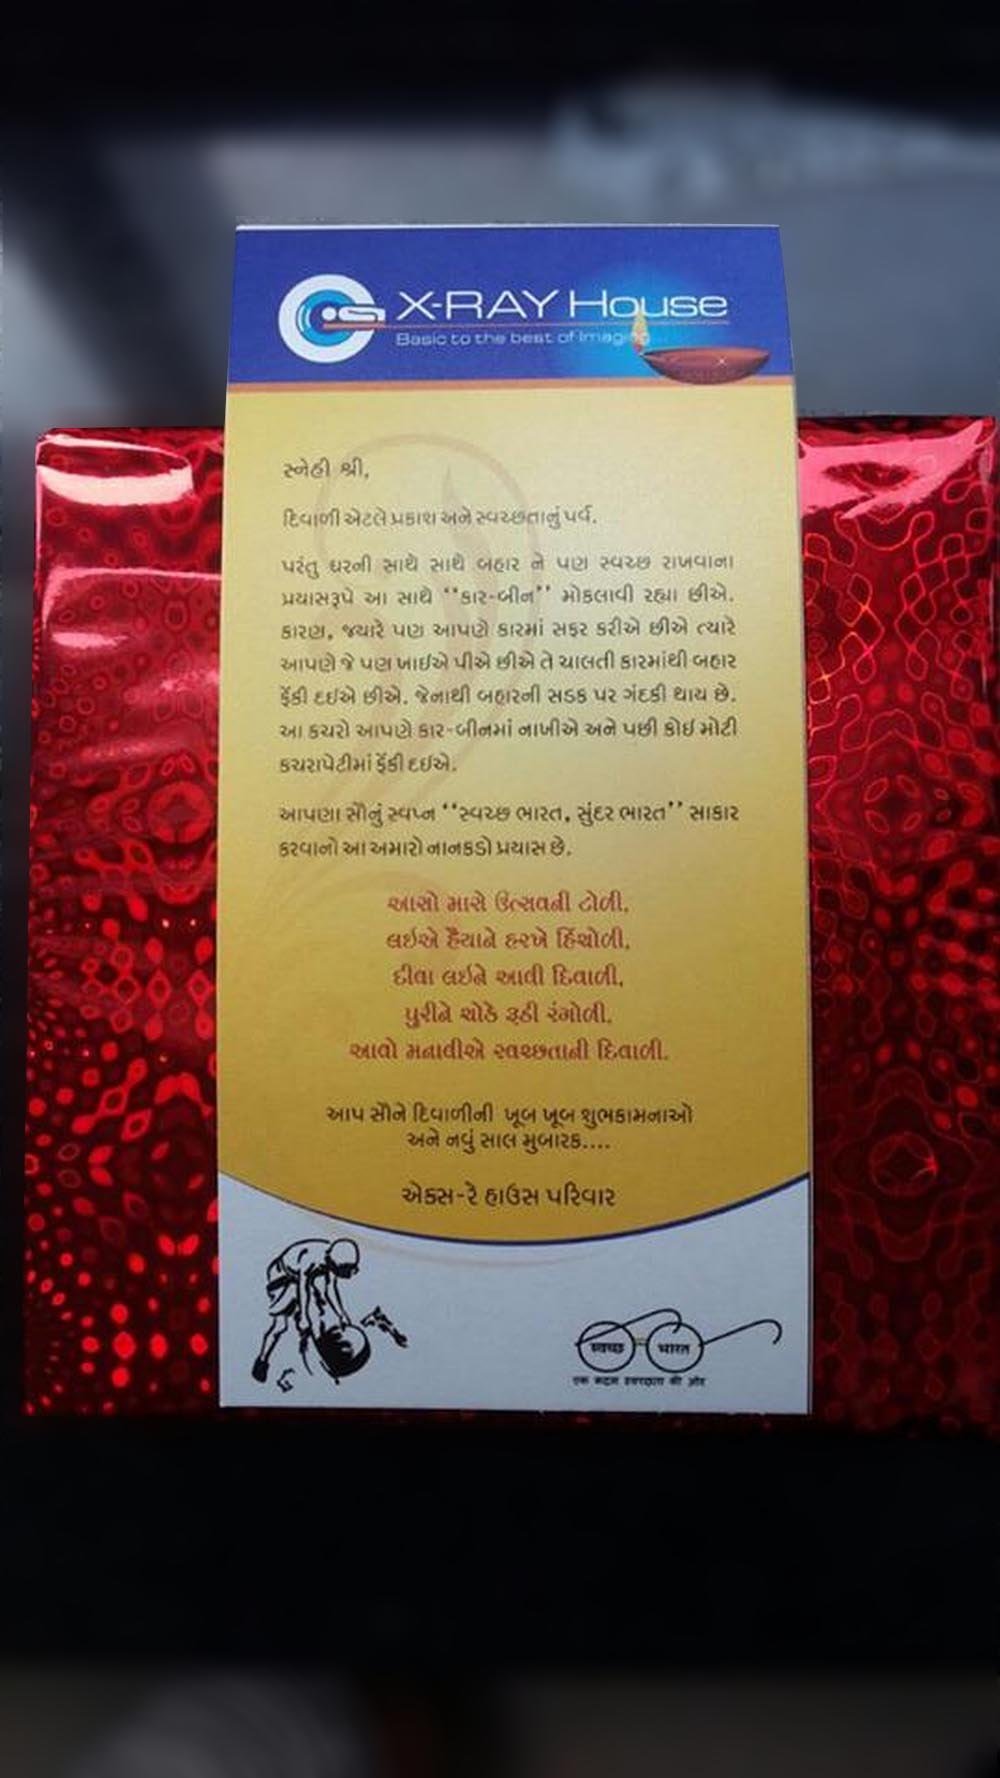 X-RAY House
Basic to the best of Imaging
સ્નેહી શ્રી,
દિવાળી એટલે પ્રકાશ અને સ્વચ્છતાનું પર્વ.
પરંતુ ઘરની સાથે સાથે બહાર ને પણ સ્વચ્છ રાખવાના
પ્રયાસરૂપે આ સાથે “કાર-બીન” મોકલાવી રહ્યા છીએ.
કારણ, જ્યારે પણ આપણે કારમાં સફર કરીએ છીએ ત્યારે
આપણે જે પણ ખાઈએ પીએ છીએ તે ચાલતી કારમાંથી બહાર
ફેંકી દઈએ છીએ. જેનાથી બહારની સડક પર ગંદકી થાય છે.
આ કચરો આપણે કાર-બીનમાં નાખીએ અને પછી કોઈ મોટી
કચરાપેટીમાં ફેંકી દઈએ.
આપણા સૌનું સ્વપ્ન “સ્વચ્છ ભારત, સુંદર ભારત” સાકાર
કરવાનો આ અમારો નાનકડો પ્રયાસ છે.
આસો માસે ઉત્સવની ટોળી,
લઈએ હૈયાને હરખે હિંચોળી,
દીવા લઈને આવી દિવાળી,
પુરીને ચોકે રૂડી રંગોળી,
આવો મનાવીએ સ્વચ્છતાની દિવાળી.
આપ સૌને દિવાળીની ખૂબ ખૂબ શુભકામનાઓ
અને નવું સાલ મુબારક....
એક્સ-રે હાઉસ પરિવાર
स्वच्छ भारत
एक कदम स्वच्छता की ओर